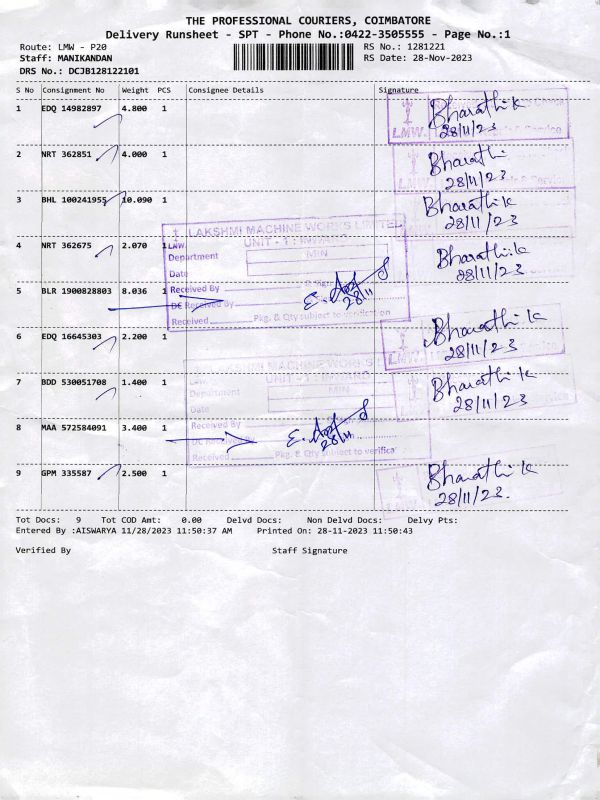 THE PROFESSIONAL COURIERS, COIMBATORE
Delivery Runsheet - SPT - Phone No.:0422-3505555 - Page No.:1
Route: LMW - P20 RS No.: 1281221
Staff: MANIKANDAN RS Date: 28-Nov-2023
DRS No.: DCJB128122101
S No Consignment No Weight PCS Consignee Details Signature
1 EDQ 14982897 4.800 1
Bharathi.K
LMW. 28/11/23
2 NRT 362851 4.000 1
Bharathi
28/11/23
3 BHL 100241955 10.090 1
Bharathi.K
28/11/23
LAKSHMI MACHINE WORKS LIMITED
UNIT - 1 : INWARD
4 NRT 362675 2.070 1
LMW.
Department MIN
Date
Bharathi.K
28/11/23
5 BLR 1900828803 8.036 1
Received By
DC Received By
28/11
Received Pkg. & Qty subject to verification
6 EDQ 16645303 2.200 1
Bharathi.K
LMW. 28/11/23
7 BDD 530051708 1.400 1
UNIT - 1 : INWARD
Department MIN
Date
Bharathi.K
28/11/23
8 MAA 572584091 3.400 1
Received By
28/11
Received Pkg. & Qty subject to verifica
9 GPM 335587 2.500 1
Bharathi.K
28/11/23.
Tot Docs: 9 Tot COD Amt: 0.00 Delvd Docs: Non Delvd Docs: Delvy Pts:
Entered By :AISWARYA 11/28/2023 11:50:37 AM Printed On: 28-11-2023 11:50:43
Verified By Staff Signature